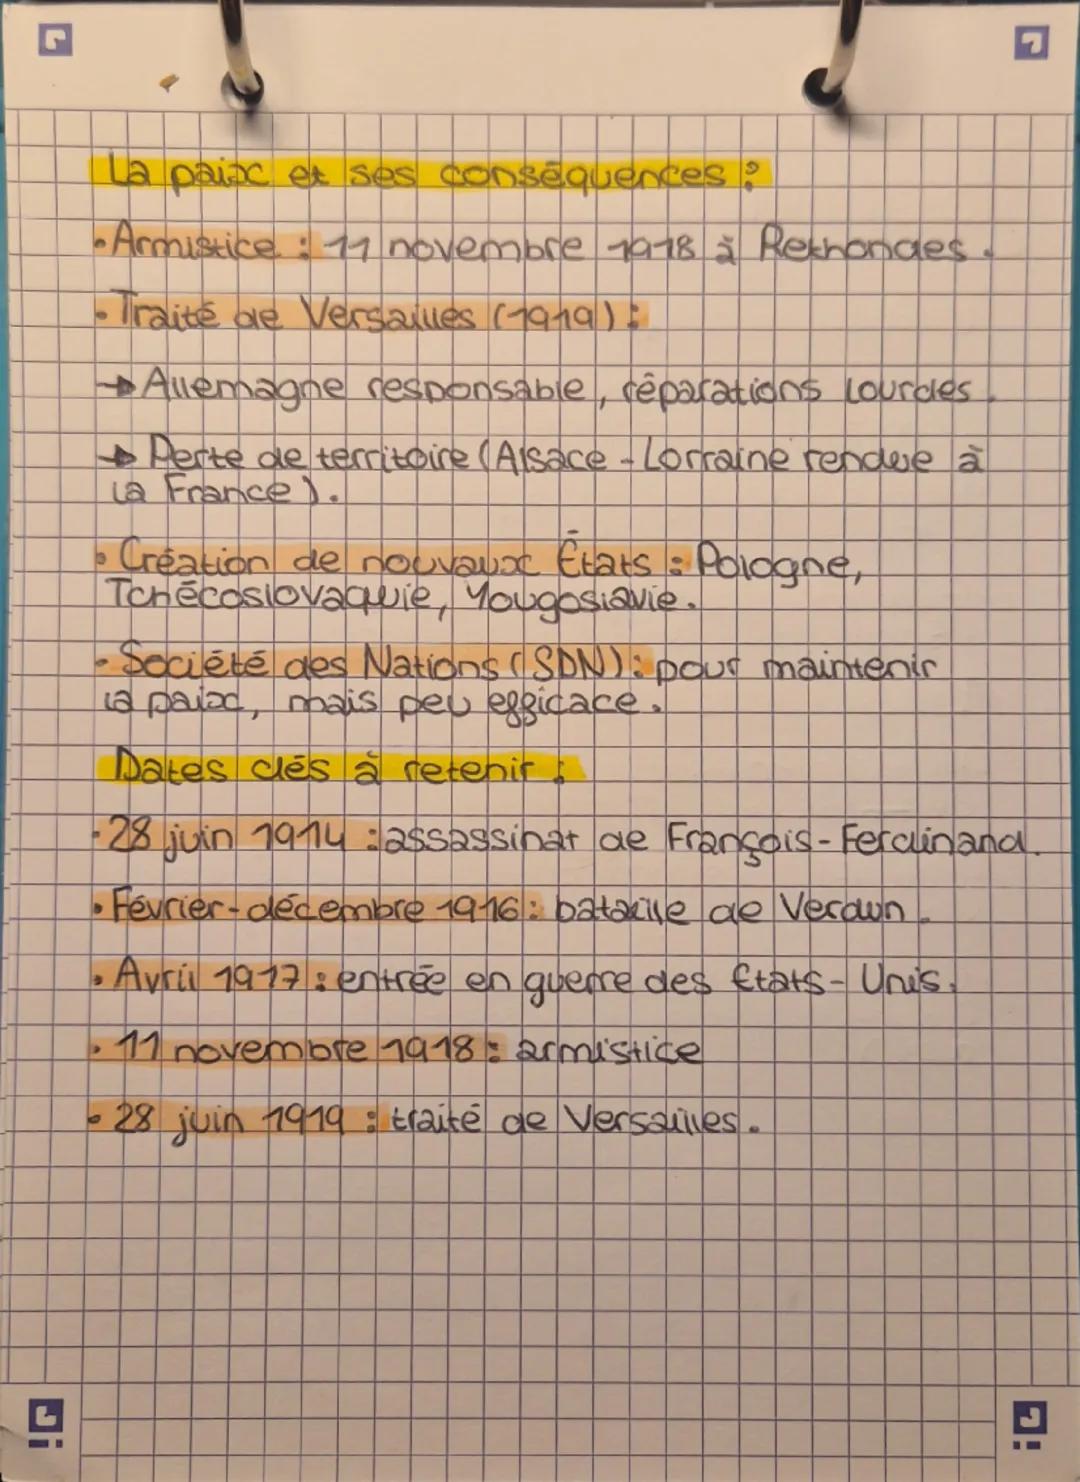 La paix et ses conséquences :
• Armistice : 11 novembre 1918 à Rethondes.
• Traité de Versailles (1919) :
→ Allemagne responsable, réparations lourdes.
→ Perte de territoire (Alsace-Lorraine rendue à
la France).
• Création de nouvaux États : Pologne,
Tchécoslovaquie, Yougoslavie.
• Société des Nations (SDN) : pour maintenir
la paix, mais peu efficace.
Dates clés à retenir :
• 28 juin 1914 : assassinat de François-Ferdinand.
• Février-décembre 1916 : bataille de Verdun.
• Avril 1917 : entrée en guerre des États-Unis.
• 11 novembre 1918 : armistice
• 28 juin 1919 : traité de Versailles.